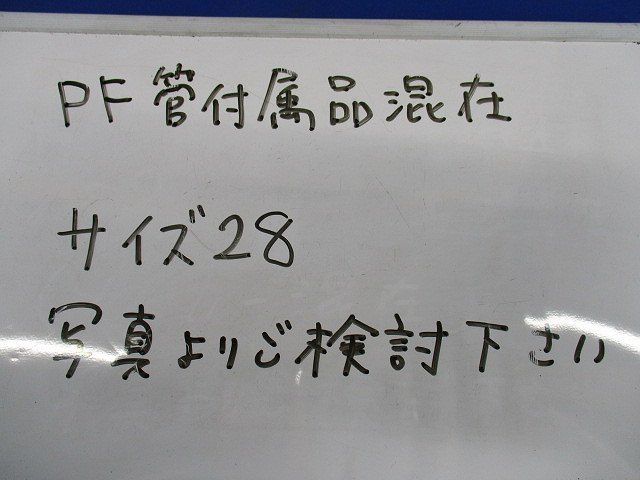 PF管付属品混在
サイズ28
写真よりご検討下さい